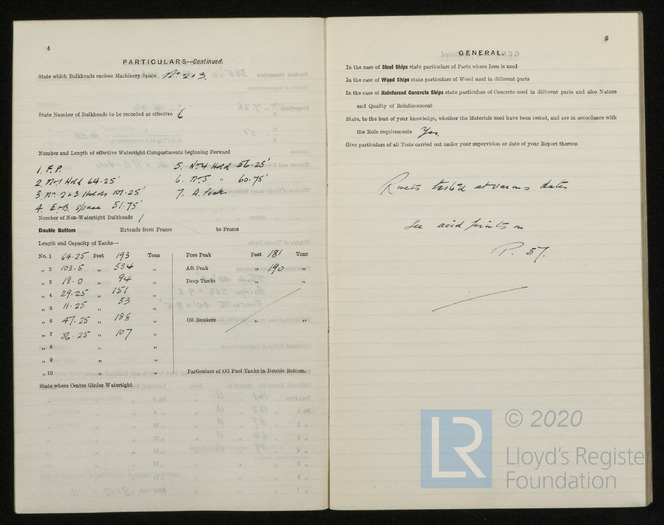 4
PARTICULARS—Continued.
State which Bulkheads enclose Machinery Space. Nos 2 & 3.
State Number of Bulkheads to be recorded as effective 6
Number and Length of effective Watertight Compartments beginning Forward
1. F.P. 5. No 4 Hold 56.25'
2. No 1 Hold 64.25' 6. No 5 " 60.75'
3. No 2 & 3 Holds 107.25' 7. A. Peak
4. E & B space 51.75'
Number of Non-Watertight Bulkheads 1
Double Bottom Extends from Frame to Frame
Length and Capacity of Tanks—
No. 1 64.25 Feet 193 Tons Fore Peak Feet 181 Tons
„ 2 103.5 „ 554 „ Aft Peak „ 190 „
„ 3 18.0 „ 94 „ Deep Tanks „ „
„ 4 29.25 „ 151 „
„ 5 11.25 „ 53 „
„ 6 47.25 „ 188 „ Oil Bunkers „ „
„ 7 36.25 „ 107 „
„ 8 „ „
„ 9 „ „
„ 10 „ „ Particulars of Oil Fuel Tanks in Double Bottom.
State where Centre Girder Watertight
GENERAL.
In the case of Steel Ships state particulars of Parts where Iron is used
In the case of Wood Ships state particulars of Wood used in different parts
In the case of Reinforced Concrete Ships state particulars of Concrete used in different parts and also Nature
and Quality of Reinforcement
State, to the best of your knowledge, whether the Materials used have been tested, and are in accordance with
the Rule requirements Yes.
Give particulars of all Tests carried out under your supervision or date of your Report thereon
Rivets tested at various dates
See acid prints on
P. 57.
LR © 2020
Lloyd's Register
Foundation